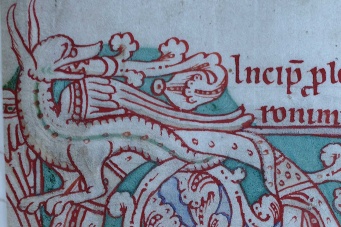 Incip̄ ꝓl
ronim